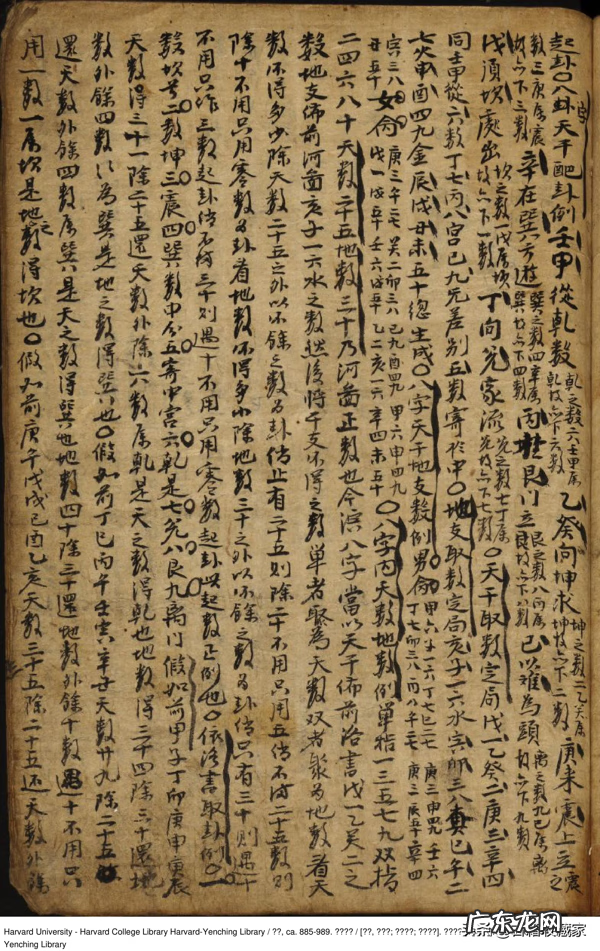 起卦〇八卦天干配卦例壬甲從乾數乾之數六壬甲屬乾故六下六數乙癸向坤求坤之數二乙癸屬坤故六下二數庚来震上立震之
數三庚屬震故六下三數辛在巽方遊巽之數四辛屬巽故六下四數丙艮门立艮之數八丙屬艮故六下八數己以離為頭離之數九己屬離故六下九數
戊須坎處出坎之數一戊屬坎故六下一數丁向兌家流兌之數七丁屬兌故六下七數〇天干取數定局戊一乙癸二庚三辛四
同壬甲從六數丁七丙八宫己九无差别五數寄於中〇地支取數定局亥子一六水寅卯三八真巳午二
七火申酉四九金辰戌丑未五十總生成〇八字天干地支數例男命甲六子一六丁七巳二七庚三申四九壬六丁七卯三八丙八午二七庚三辰五十辛四
寅三八丑五十女命庚三午二七癸二卯三八己九酉四九甲六申四九戊一戌五十壬六戌五十乙二亥一六辛四未五十〇八字内天數地數例单指一三五七九双指
二四六八十天數二十五地數三十乃河啚正數也今八字當以天干佈前洛書戊一乙癸二之
數地支佈前河啚亥子一六水之數然後将干支所得之數单者聚為天數双者聚為地數看天
數所得多少除天數二十五之外以所餘之數為卦倘止有二十五則除二十不用只用五倘不滿二十五數則
除十不用只用零數為卦看地數所得多少除地數三十之外以所餘之數為卦倘只有三十則遇十
不用只作三數起卦倘不滿三十則遇十不用只用零數起卦此起數正例也〇依洛書取卦例〇一
數坎〇二數坤三震四巽數中分五寄中宫六乾是七兌八艮九離门假如前甲子丁卯庚申庚辰
天數得三十一除二十五還天數外除六數屬乾是天之數得乾也地數得三十四除三十還地
數外餘四數以為巽是地之數得巽也〇假如前丁巳丙午壬寅辛丑天數廿九除二十五
還天數外餘四數屬巽是天之數得巽也地數四十除三十還地數外餘十數遇十不用只
用一數一屬坎是地之數得坎也〇假如前庚午戊戌己酉乙亥天數三十五除二十五还天數外餘
Harvard University - Harvard College Library Harvard-Yenching Library / ??, ca. 885-989. ???? / [??, ???; ????; ????].
Yenching Library
广东龙网